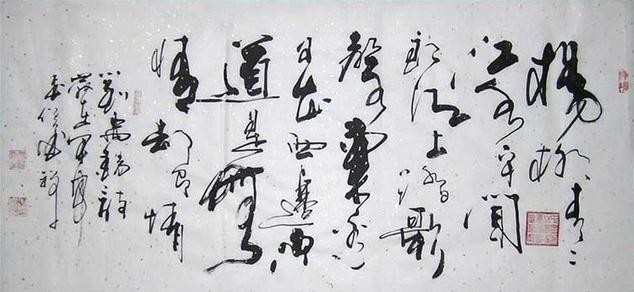 楊柳青〻
江水平聞
郎江上唱歌
聲東邊
日出西邊雨
道是無
晴却有晴
劉禹錫詩